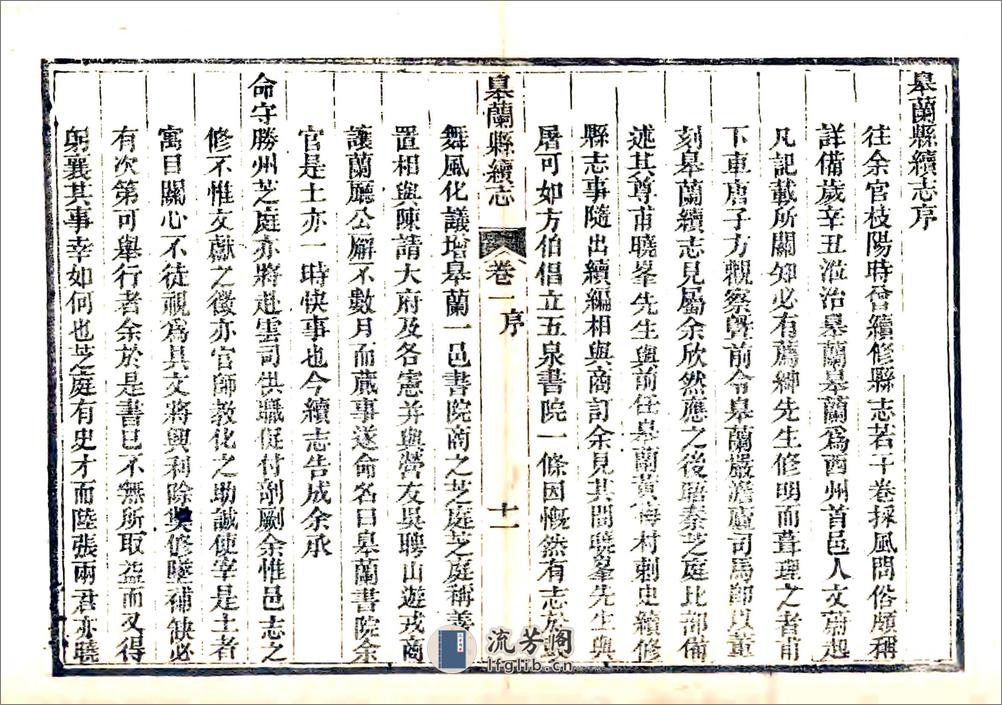 皋蘭縣續志序
往余官枝陽時曾續修縣志若干卷採風問俗頗稱
詳備歲辛丑涖治皋蘭皋蘭為西州首邑人文蔚起
凡記載所關知必有薦紳先生修明而葺理之者甫
下車唐子方觀察曁前令皋蘭嚴澹廬司馬即以董
刻皋蘭續志見屬余欣然應之後晤秦芝庭比部備
述其尊甫曉峯先生與前任皋蘭黃梅村刺史續修
縣志事隨出續編相與商訂余見其間曉峯先生與
屠可如方伯倡立五泉書院一條因慨然有志於
皋蘭縣續志 卷一 序 十一
舞風化議增皋蘭一邑書院商之芝庭芝庭稱善
置相與陳請大府及各憲并與營友吳聘山遊戎商
讓蘭廳公廨不數月而蕆事遂命名曰皋蘭書院余
官是土亦一時快事也今續志告成余承
命守勝州芝庭亦將赴雲司供職促付剞劂余惟邑志之
修不惟文獻之徵亦官師教化之助誠使宰是土者
寓目關心不徒視為具文將興利除獘修墜補缺必
有次第可舉行者余於是書已不無所取益而又得
躬襄其事幸如何也芝庭有史才而陸張兩君亦曉
流芳閣
lfglib.cn